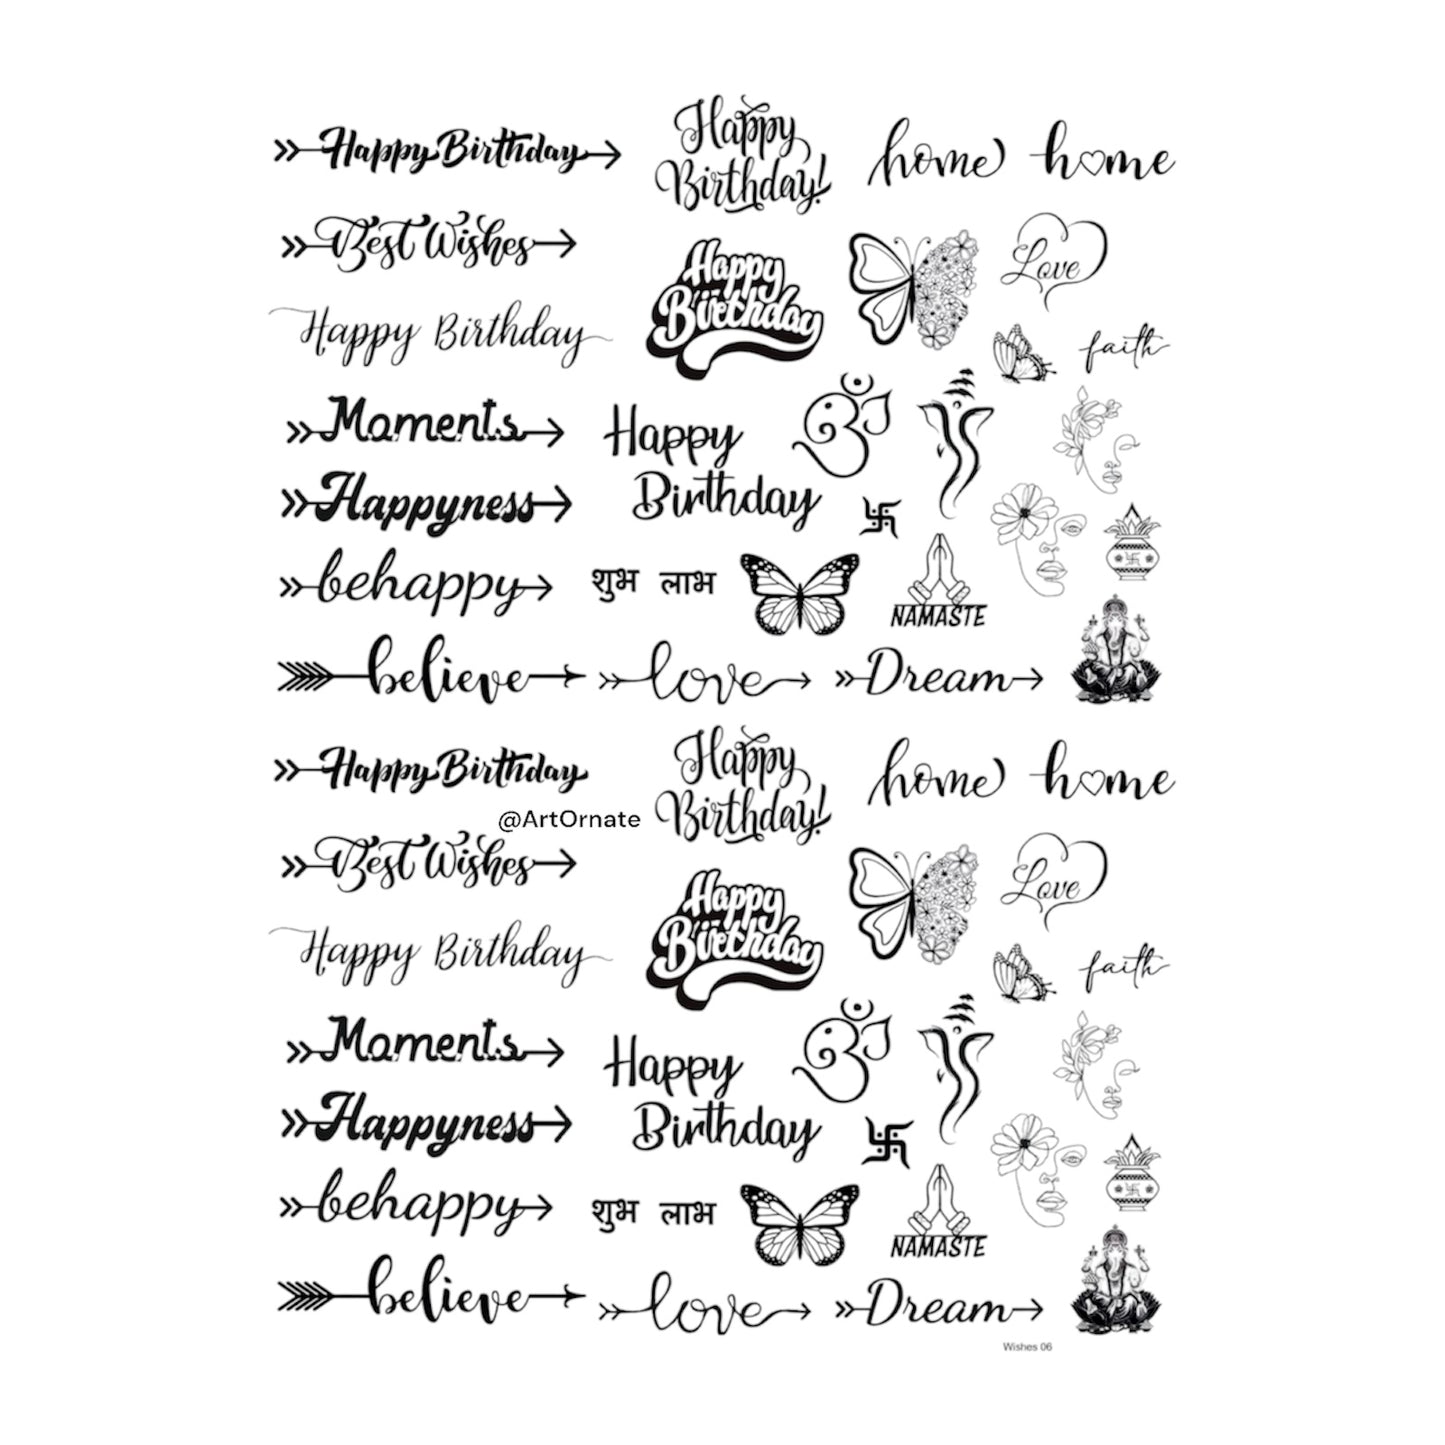 Happy Birthday
Happy
Birthday!
home
home
Best Wishes
Happy
Birthday
Love
Happy Birthday
faith
Moments
Happy
Birthday
Happyness
behappy
शुभ लाभ
NAMASTE
believe
love
Dream
Happy Birthday
Happy
Birthday!
home
home
@ArtOrnate
Best Wishes
Happy
Birthday
Love
Happy Birthday
faith
Moments
Happy
Birthday
Happyness
behappy
शुभ लाभ
NAMASTE
believe
love
Dream
Wishes 06